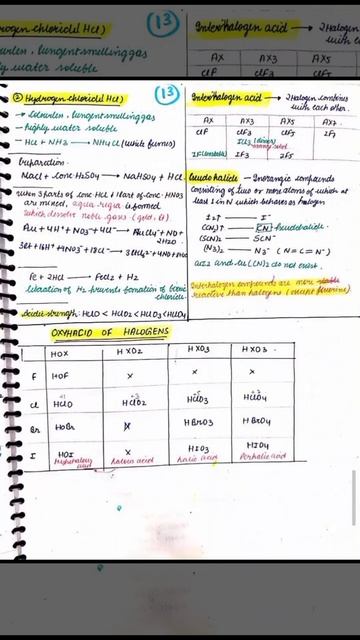 rogen chloride( Hcl)
(13)
Interhalogen acid → 2 Halogen
urless, Pungent smelling gas
ly water soluble
AX AX3 AX5
ClF ClF3 ClF5
② Hydrogen chloride( Hcl)
(13)
→ colourless, Pungent smelling gas
→ highly water soluble
→ HCl + NH3 → NH4Cl (white fumes)
Preparation
NaCl + conc H2SO4 → NaHSO4 + HCl
when 3 parts of conc HCl & 1 part of conc. HNO3
are mixed, aqua-regia is formed
which dissolve noble gas (gold, Pt)
Au + 4H+ + NO3- + 4Cl- → AuCl4- + NO +
2H2O
3Pt + 16H+ + 4NO3- + 18Cl- →
Fe + 2HCl → FeCl2 + H2
liberation of H2 prevents formation of ferric
chloride
Acidic strength: HClO < HClO2 < HClO3 < HClO4
Interhalogen acid → 2 Halogen combines
with each other.
AX AX3 AX5 AX7
ClF ClF3 ClF5 IF7
ICl3 (dimer)
IF (unstable) IF3
Pseudohalide – Inorganic compounds
consisting of two or more atoms of which at
least 1 is N which behaves as halogen
I2↑ — I-
(CN)2↑ — CN- Pseudohalide
(SCN)2 — SCN-
(N3)2 — N3- (N=C=N-)
do not exist.
Interhalogen compounds are more stable
reactive than halogens (except fluorine)
OXYHACID OF HALOGENS
HOX HXO2 HXO3 HXO3
F HOF × × ×
Cl HClO HClO2 HClO3 HClO4
+1 +3 +5 +7
Br HOBr × HBrO3 HBrO4
I HOI × HIO3 HIO4
Hypohalous acid Halous acid Halic acid Perhalic acid